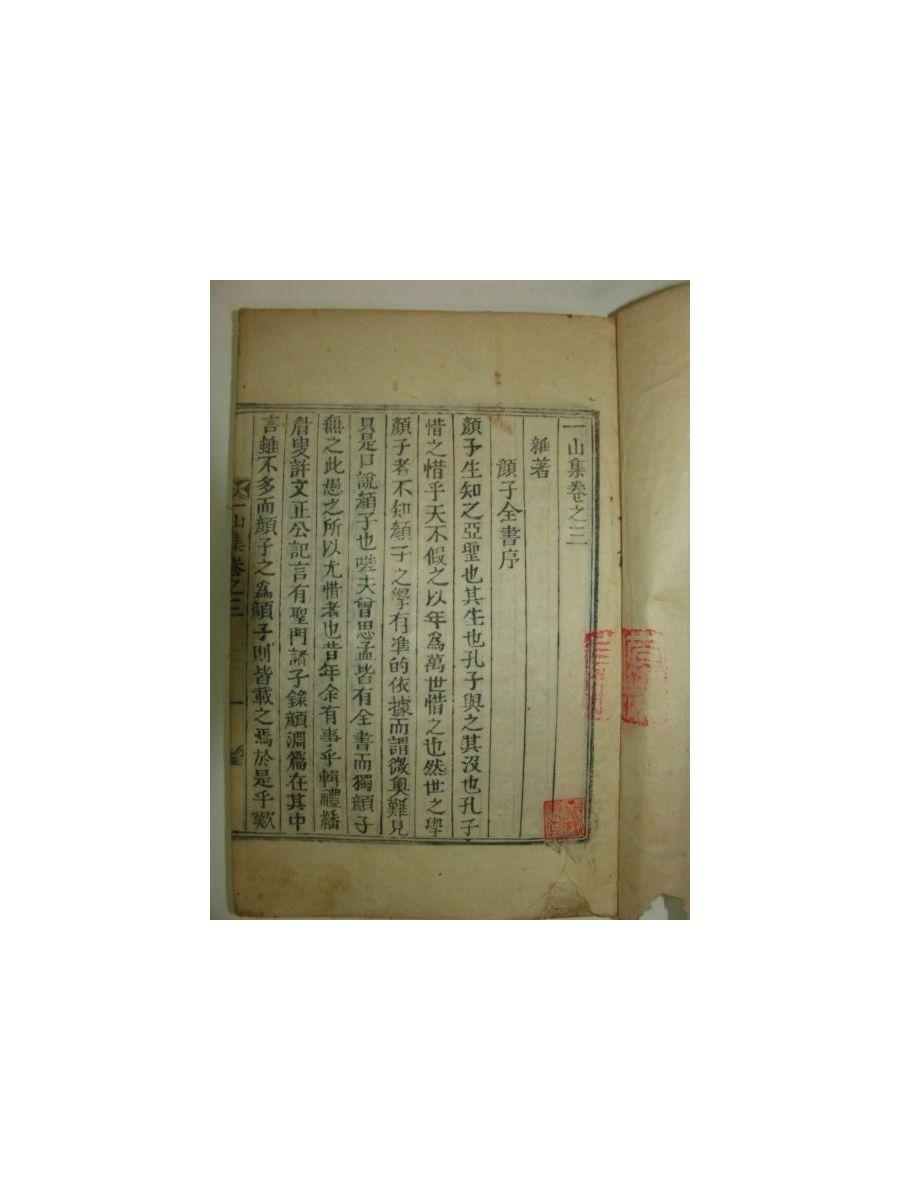 一山集卷之三
雜著
顔子全書序
顔子生知之亞聖也其生也孔子與之其沒也孔子
惜之惜乎天不假之以年爲萬世惜之也然世之學
顔子者不知顔子之學有準的依據而謂微奧難見
只是口說顔子也嗟夫曾思孟皆有全書而獨顔子
無之此愚之所以尤惜者也昔年余有事乎輯禮繙
眉叟許文正公記言有聖門諸子錄顔淵篇在其中
言雖不多而顔子之爲顔子則皆載之焉於是乎歎
一山集卷之三
一